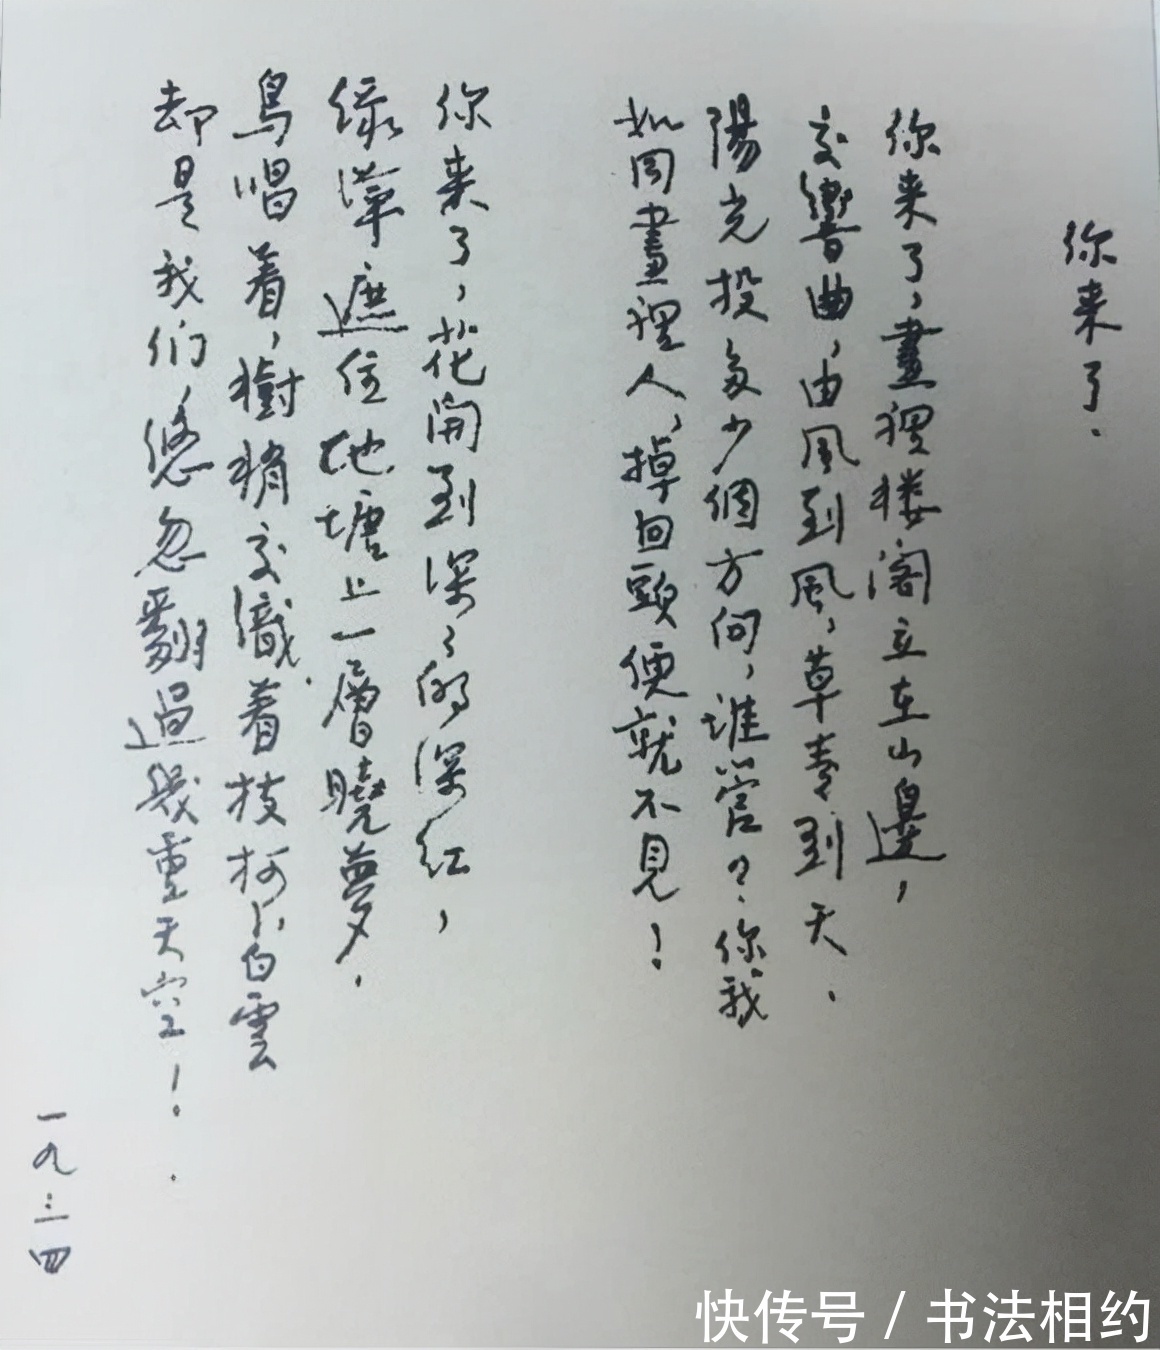 你来了.
你来了，畫裡楼阁立在山邊，
交響曲，由風到風，草青到天.
陽光投多少個方向，誰管？你我
如同畫裡人，掉回頭便就不見！
你来了，花開到深深的深红，
绿萍遮住池塘上一層曉夢.
鳥唱着，樹梢交織着枝柯，白雲
却是我们，悠忽翻過幾重天空！
一九三四
快传号 / 书法相约